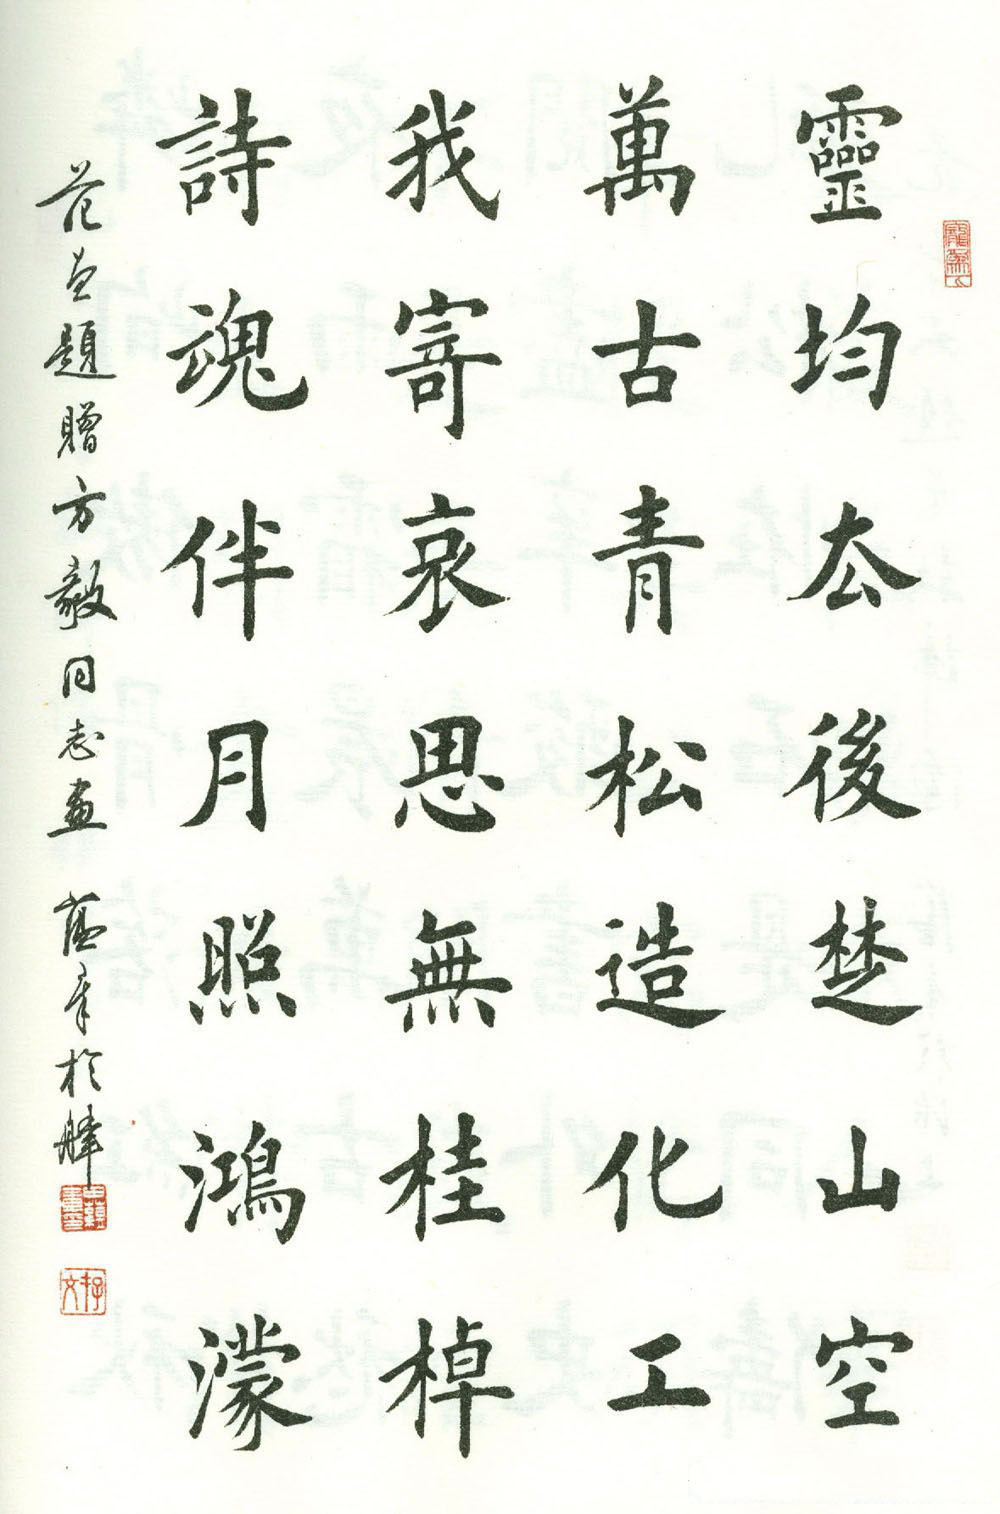 靈均去後楚山空
萬古青松造化工
我寄哀思無桂棹
詩魂伴月照鴻濛
范曾題贈方毅同志畫 蘊章於